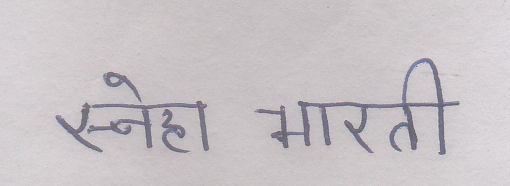 स्नेहा भारती